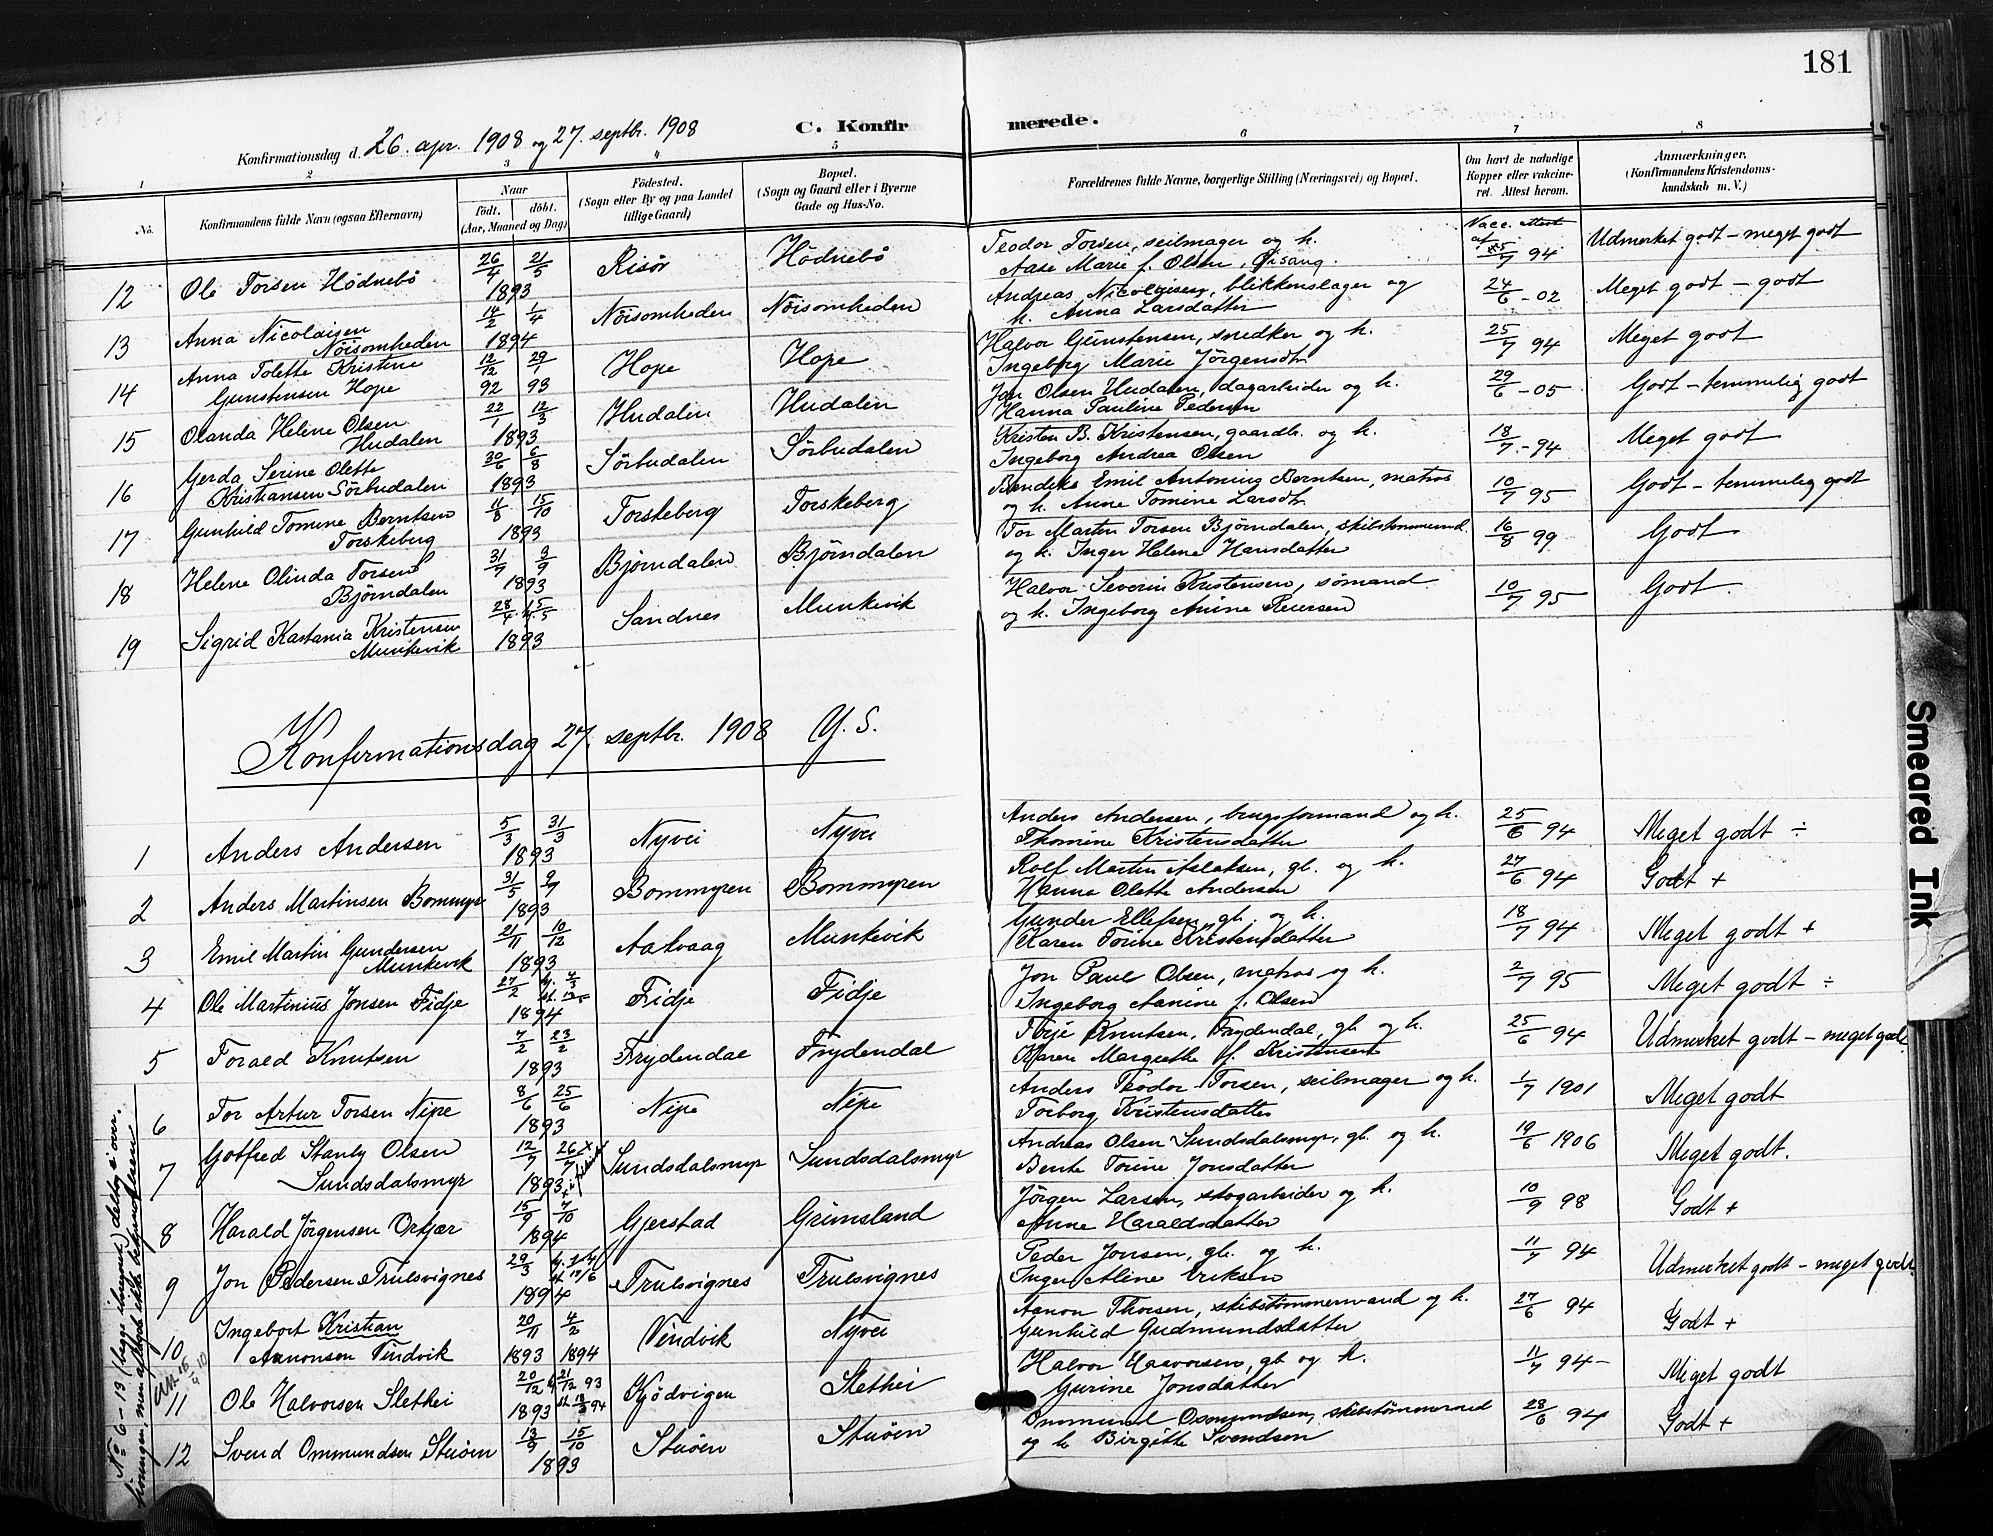 181
C. Konfirmerede.
Konfirmationsdag d. 26. apr. 1908 og 27. septbr. 1908
1 2 3 4 5 6 7 8
No.
Konfirmandens fulde Navn (ogsaa Efternavn)
Naar
født. døbt.
(Aar, Maaned og Dag)
Födested.
(Sogn eller By og paa Landet
tillige Gaard)
Bopæl.
(Sogn og Gaard eller i Byerne
Gade og Hus-No.
Forældrenes fulde Navne, borgerlige Stilling (Næringsvei) og Bopæl.
Om havt de naturlige
Kopper eller vakcine-
ret. Attest herom.
Anmærkninger.
(Konfirmandens Kristendoms-
kundskab m. V.)
12 Ole Torsen Hödnebö 26/4 21/5 1893 Risör Hödnebö Teodor Torsen, seilmager og h. Aase Marie f. Olsen, Öisang. Vacc. attest af 25/7 94 Udmerket godt – meget godt
13 Anna Nicolaisen Nöisomheden 14/2 1/4 1894 Nöisomheden Nöisomheden Andreas Nicolaisen, blikkenslager og h. Anna Larsdatter 24/6 - 02 Meget godt – godt
14 Anna Tolette Kristine Gunstensen Hope 12/12 92 29/1 93 Hope Hope Halvor Gunstensen, snedker og h. Ingeborg Marie Jörgensdt. 25/7 94 Meget godt
15 Olanda Helene Olsen Hudalen 22/1 12/3 1893 Hudalen Hudalen Jon Olsen Hudalen, dagarbeider og h. Hanna Pauline Pedersen 29/6 - 05 Godt – temmelig godt
16 Gerda Serine Olette Kristiansen Sörbudalen 30/6 6/8 1893 Sörbudalen Sörbudalen Kristen B. Kristensen, gaardb. og h. Ingeborg Andrea Olsen 18/7 - 94 Meget godt
17 Gunhild Tomine Berntsen Torskeberg 11/8 15/10 1893 Torskeberg Torskeberg Bendiks Emil Antoning Berntsen, matros og h. Anne Tomine Larsdt. 10/7 95 Godt – temmelig godt
18 Helene Olinda Torsen Bjørndalen 31/7 3/9 1893 Bjørndalen Bjørndalen Tor Martin Torsen Bjørndalen, skibstømmermd. og h. Inger Helene Hansdatter 16/8 99 Godt
19 Sigrid Kastania Kristensen Munkevik 28/4 1893 Sandnes Munkevik Halvor Severin Kristensen, sömand og h. Ingeborg Anine Reiersen 10/7 95 Godt.
Konfirmationsdag 27. septbr. 1908 Y. S.
1 Anders Andersen 5/3 31/3 1893 Nyvei Nyvei Anders Andersen, brugsformand og h. Thomine Kristensdatter 25/6 94 Meget godt ÷
2 Anders Martinsen Bommyr 31/5 9/7 1893 Bommyren Bommyren Rolf Martin Aslaksen, gb. og h. Hanna Olette Andersen 27/6 94 Godt +
3 Emil Martin Gundersen Munkevik 21/11 10/12 1893 Aalvaag Munkevik Gunder Ellefsen, gb. og h. Karen Torine Kristensdatter 18/7 94 Meget godt +
4 Ole Martinius Jonsen Fidje 27/2 1894 Fidje Fidje Jon Paul Olsen, matros og h. Ingeborg Aanine f. Olsen 2/7 95 Meget godt ÷
5 Torald Knutsen 7/2 23/2 1893 Frydendal Frydendal Terje Knutsen, Frydendal, gb. og h. Karen Margrethe f. Kristensen 25/6 94 Udmerket godt – meget godt.
6 Tor Artur Torsen Nipe 8/6 25/6 1893 Nipe Nipe Anders Teodor Torsen, seilmager og h. Torborg Kristensdatter 1/7 1901 Meget godt
7 Gotfred Stanly Olsen Sundsdalsmyr 12/7 26/7 1893 Sundsdalsmyr Sundsdalsmyr Andreas Olsen Sundsdalsmyr, gb. og h. Bente Torine Jonsdatter 19/6 1906 Meget godt.
8 Harald Jörgensen Orkjær 15/9 7/10 1894 Gjerstad Grimsland Jörgen Larsen, skogarbeider og h. Anne Haraldsdatter 10/9 98 Godt +
9 Jon Pedersen Trulsvignes 29/3 1894 Trulsvignes Trulsvignes Peder Jonsen, gb. og h. Inger Aline Eriksen 11/7 94 Udmerket godt – meget godt.
10 Ingebort Kristian Aanonsen Vindvik 20/11 1893 4/2 1894 Vindvik Nyvei Aanon Thorsen, skibstömmermand og h. Gunhild Gudmundsdatter 27/6 94 Godt +
11 Ole Halvorsen Slethei 20/12 1893 21/12 93 Kjödvigen Slethei Halvor Halvorsen, gb og h. Gurine Jonsdatter 11/7 94 - Meget godt
12 Svend Ommundsen Stuöen 13/9 15/10 1893 Stuöen Stuöen Ommund Osmundsen, skibstömmermand og h Birgitte Svendsen 28/6 94 Godt +
No 6–13 (begge iberegnet) deltog i over-
höringen, men aflagde ikke bekjendelsen
Smeared Ink